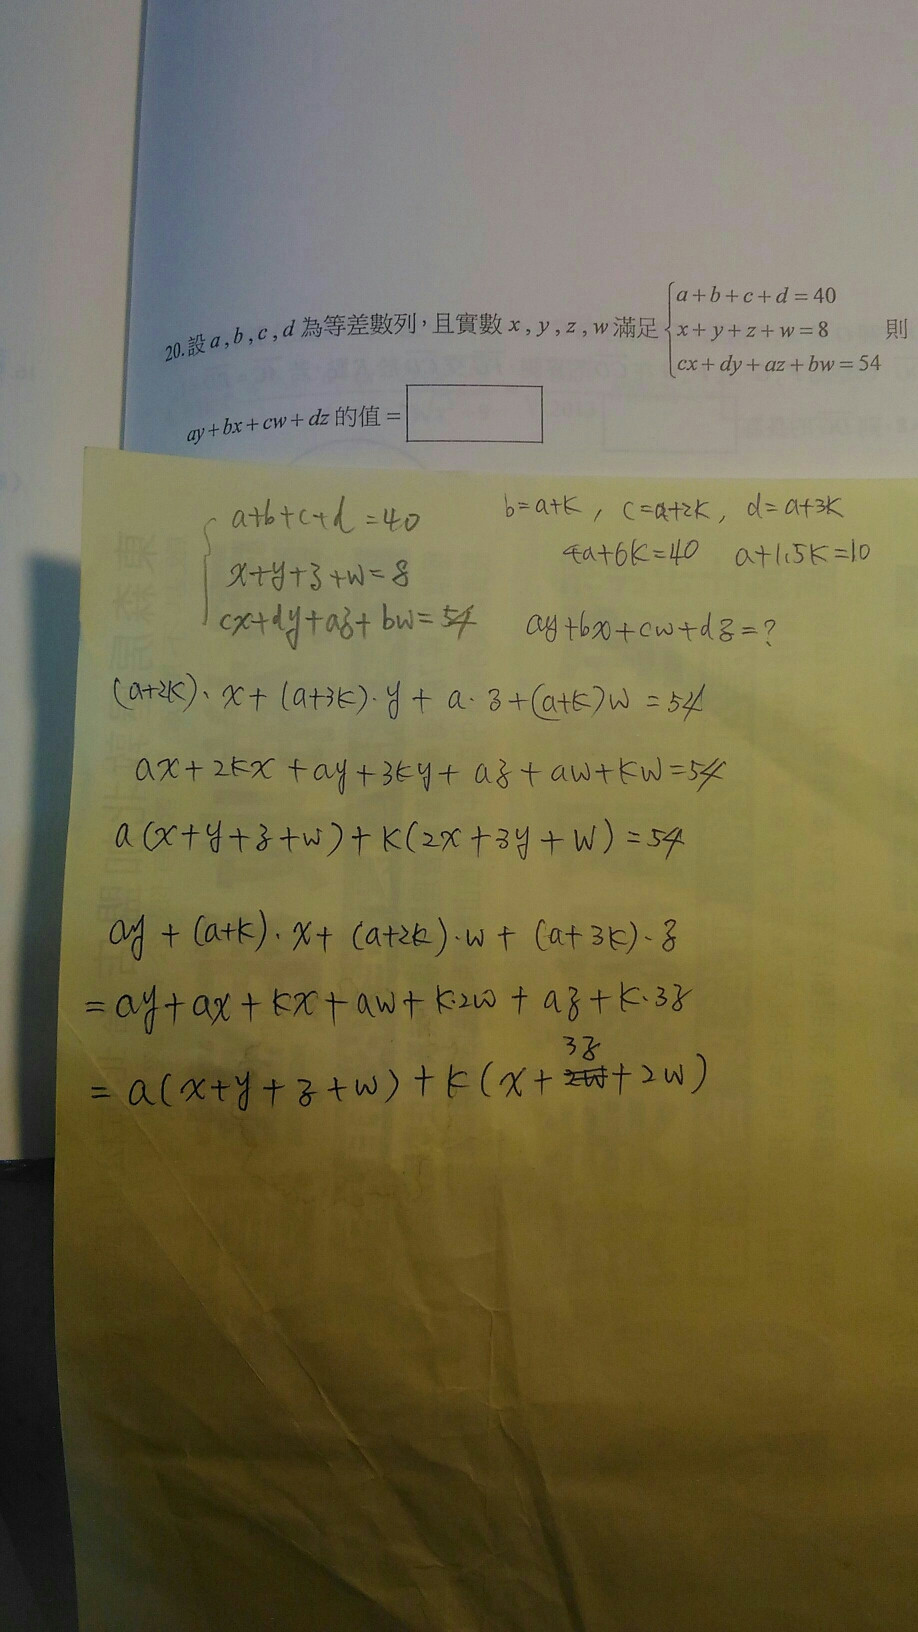 20.設 a , b , c , d 為等差數列，且實數 x , y , z , w 滿足 { a+b+c+d=40
x+y+z+w=8 則
cx+dy+az+bw=54
ay+bx+cw+dz 的值 =
a+b+c+d=40
x+y+z+w=8
cx+dy+az+bw=54
b=a+k , c=a+2k , d=a+3k
4a+6k=40 a+1.5k=10
ay+bx+cw+dz=?
(a+2k)·x+(a+3k)·y+a·z+(a+k)w=54
ax+2kx+ay+3ky+az+aw+kw=54
a(x+y+z+w)+k(2x+3y+w)=54
ay+(a+k)·x+(a+2k)·w+(a+3k)·z
=ay+ax+kx+aw+k·2w+az+k·3z
3z
=a(x+y+z+w)+k(x+2w+2w)